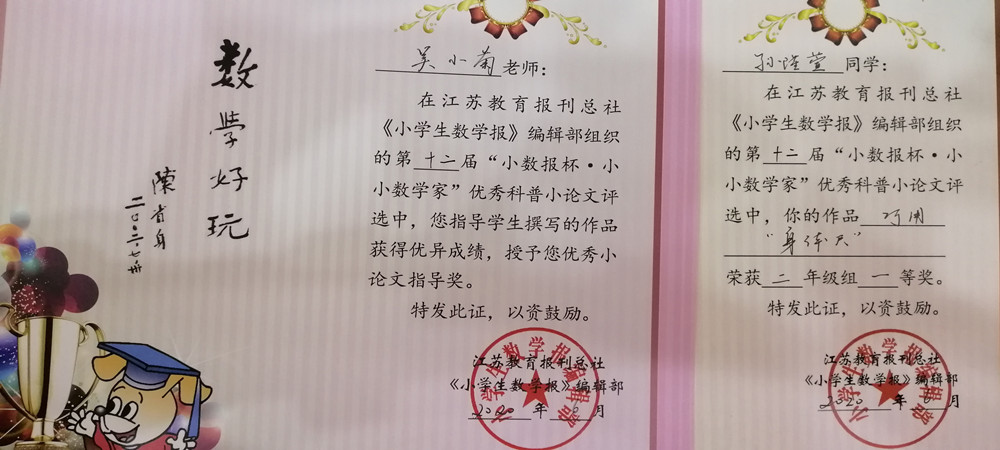 数学好玩
陳省身
吴小菊老师：
在江苏教育报刊总社
《小学生数学报》编辑部组织
的第十二届“小数报杯·小
小数学家”优秀科普小论文评
选中，您指导学生撰写的作品
获得优异成绩，授予您优秀小
论文指导奖。
特发此证，以资鼓励。
江苏教育报刊总社
《小学生数学报》编辑部
2020年6月
小学生数学报编辑部
孙萱同学：
在江苏教育报刊总社
《小学生数学报》编辑部组织
的第十二届“小数报杯·小
小数学家”优秀科普小论文评
选中，你的作品巧用
“身体尺”
荣获二年级组一等奖。
特发此证，以资鼓励。
江苏教育报刊总社
《小学生数学报》编辑部
2020年6月
小学生数学报编辑部